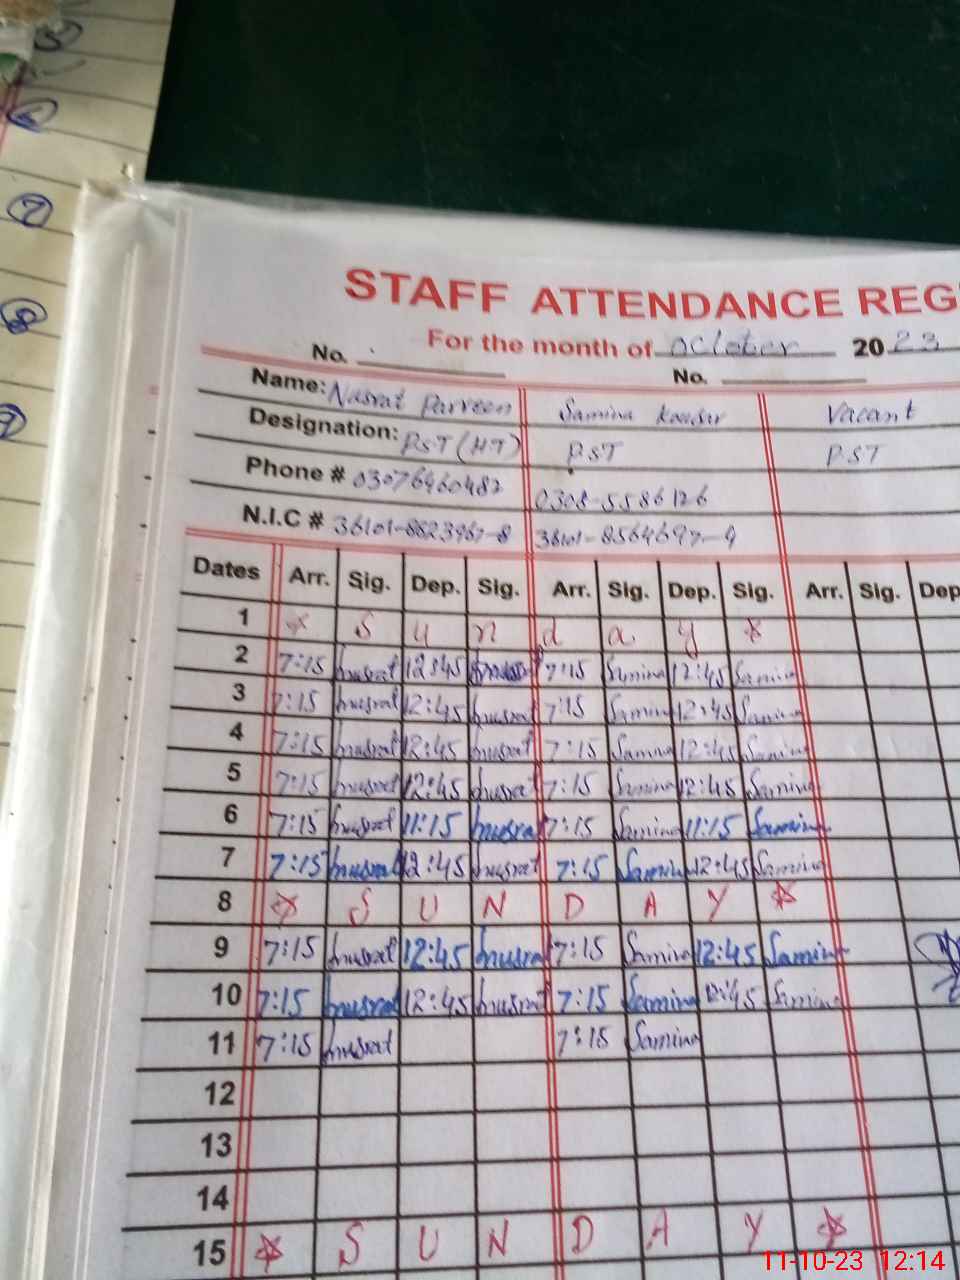 STAFF ATTENDANCE REG
For the month of October 2023
No. No.
Name: Nusrat Parveen Samina Kausar Vacant
Designation: PST (HT) PST PST
Phone # 03076460482 0308-5586126
N.I.C # 36101-8623967-8 36101-8564697-9
Dates Arr. Sig. Dep. Sig. Arr. Sig. Dep. Sig. Arr. Sig. Dep
1 S u n d a y
2 7:15 nusrat 12:45 nusrat 7:15 Samina 12:45 Samina
3 7:15 nusrat 12:45 nusrat 7:15 Samina 12:45 Samina
4 7:15 nusrat 12:45 nusrat 7:15 Samina 12:45 Samina
5 7:15 nusrat 12:45 nusrat 7:15 Samina 12:45 Samina
6 7:15 nusrat 11:15 nusrat 7:15 Samina 11:15 Samina
7 7:15 nusrat 12:45 nusrat 7:15 Samina 12:45 Samina
8 S U N D A Y
9 7:15 nusrat 12:45 nusrat 7:15 Samina 12:45 Samina
10 7:15 nusrat 12:45 nusrat 7:15 Samina 12:45 Samina
11 7:15 nusrat 7:15 Samina
12
13
14
15 S U N D A Y
11-10-23 12:14